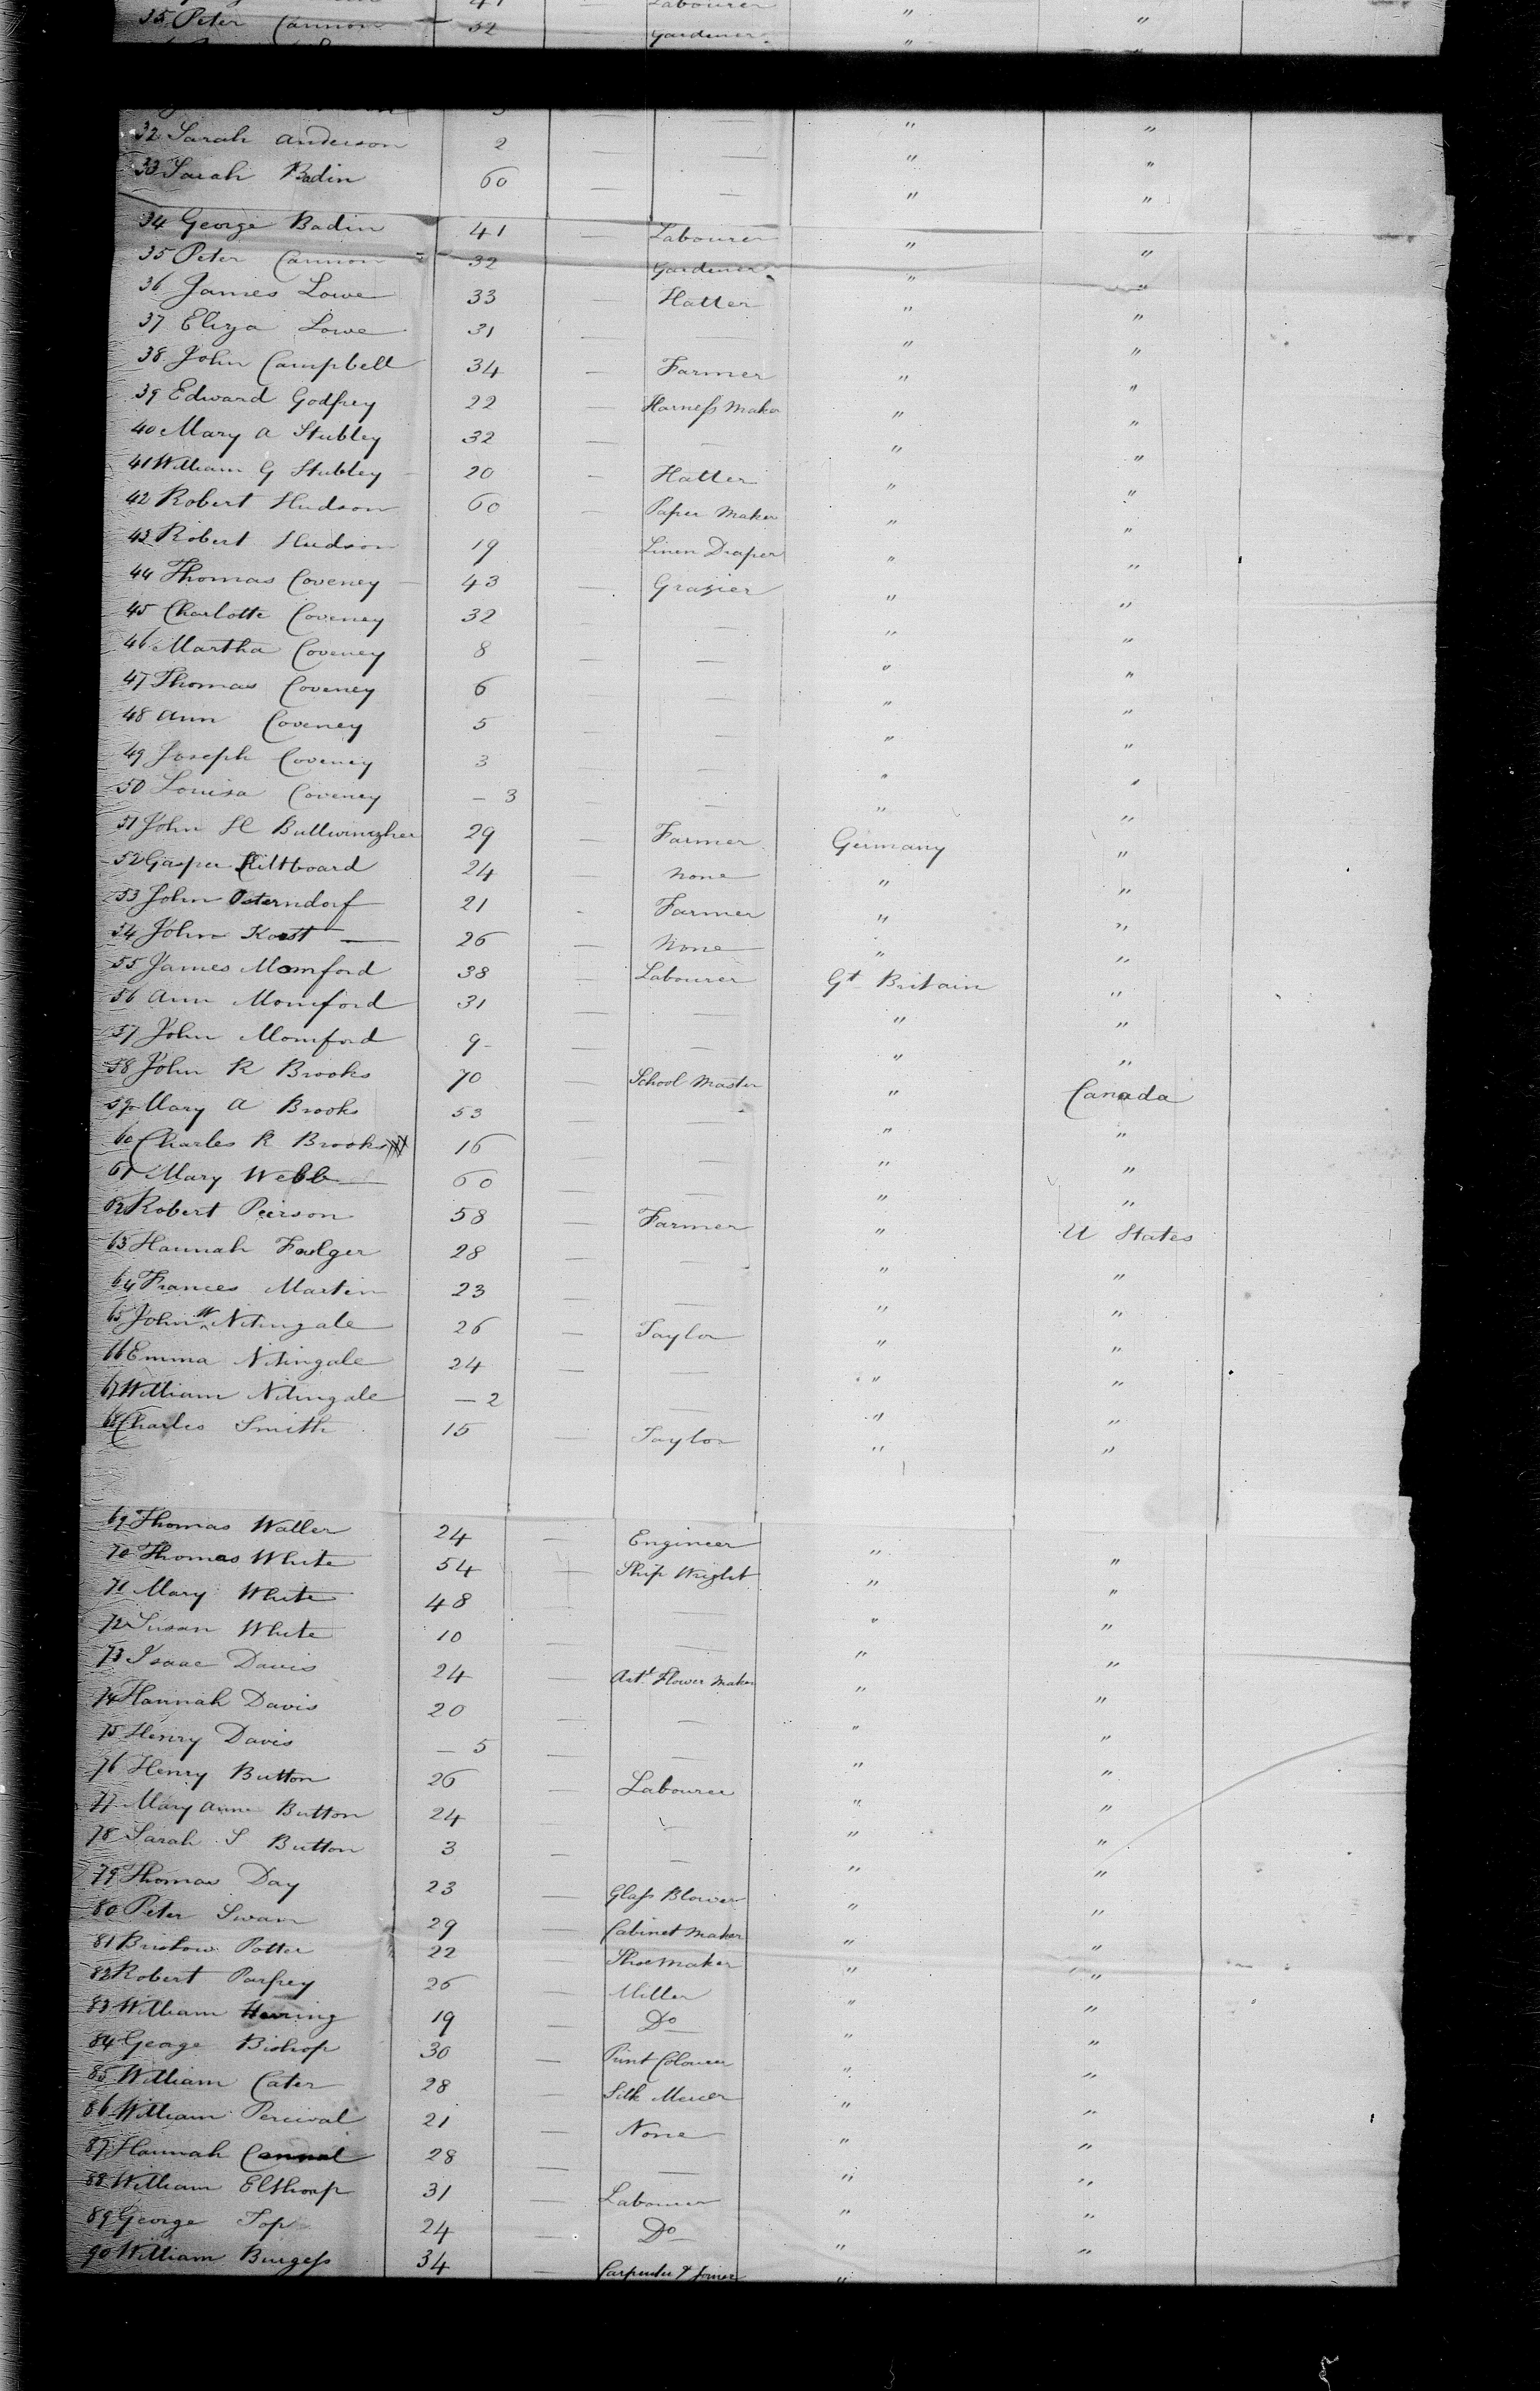 Labourer
35 Peter Cannon 32 Gardener " "
" "
32 Sarah Anderson 2 — — " "
33 Sarah Badin 60 — — " "
34 George Badin 41 — Labourer " "
35 Peter Cannon 32 Gardener " "
36 James Lowe 33 — Hatter " "
37 Eliza Lowe 31 — — " "
38 John Campbell 34 — Farmer " "
39 Edward Godfrey 22 — Harness Maker " "
40 Mary A Stubley 32 — — " "
41 William G Stubley 20 — Hatter " "
42 Robert Hudson 60 — Paper Maker " "
43 Robert Hudson 19 Linen Draper " "
44 Thomas Coveney 43 — Grazier " "
45 Charlotte Coveney 32 — — " "
46 Martha Coveney 8 — — " "
47 Thomas Coveney 6 — — " "
48 Ann Coveney 5 — — " "
49 Joseph Coveney 3 — — " "
50 Louisa Coveney — 3 — — " "
51 John H 29 — Farmer Germany "
52 Gasper 24 — None " "
53 John Osterndorf 21 - Farmer " "
54 John Korst — 26 — None " "
55 James Momford 38 — Labourer Gt Britain "
56 Ann Momford 31 — — " "
57 John Momford 9 — — " "
58 John R Brooks 70 — School Master " Canada
59 Mary A Brooks 53 — — " "
60 Charles R Brooks 16 — — " "
61 Mary Webb 60 — — " "
62 Robert Peirson 58 — Farmer " U States
63 Hannah Folger 28 — — " "
64 Frances Martin 23 — — " "
65 John W Nitingale 26 — Taylor " "
66 Emma Nitingale 24 — — " "
67 William Nitingale — 2 — " "
68 Charles Smith 15 — Taylor " "
69 Thomas Waller 24 — Engineer " "
70 Thomas White 54 — Ship Wright " "
71 Mary White 48 — — " "
72 Susan White 10 — — " "
73 Isaac Davis 24 — Artl Flower Maker " "
74 Hannah Davis 20 — — " "
75 Henry Davis — 5 — — " "
76 Henry Button 26 — Labourer " "
77 Mary Anne Button 24 — " "
78 Sarah S Button 3 — — " "
79 Thomas Day 23 — Glass Blower " "
80 Peter Swan 29 — Cabinet Maker " "
81 Bristow Potter 22 — Shoemaker " "
82 Robert Parfrey 26 — Miller " "
83 William Hering 19 — Do " "
84 George Bishop 30 — Print Colourer " "
85 William Cater 28 — Silk Mercer " "
86 William Percival 21 — None " "
87 Hannah 28 — — " "
88 William Elthorp 31 — Labourer " "
89 George Top 24 — Do " "
90 William Burgess 34 — Carpenter & Joiner "